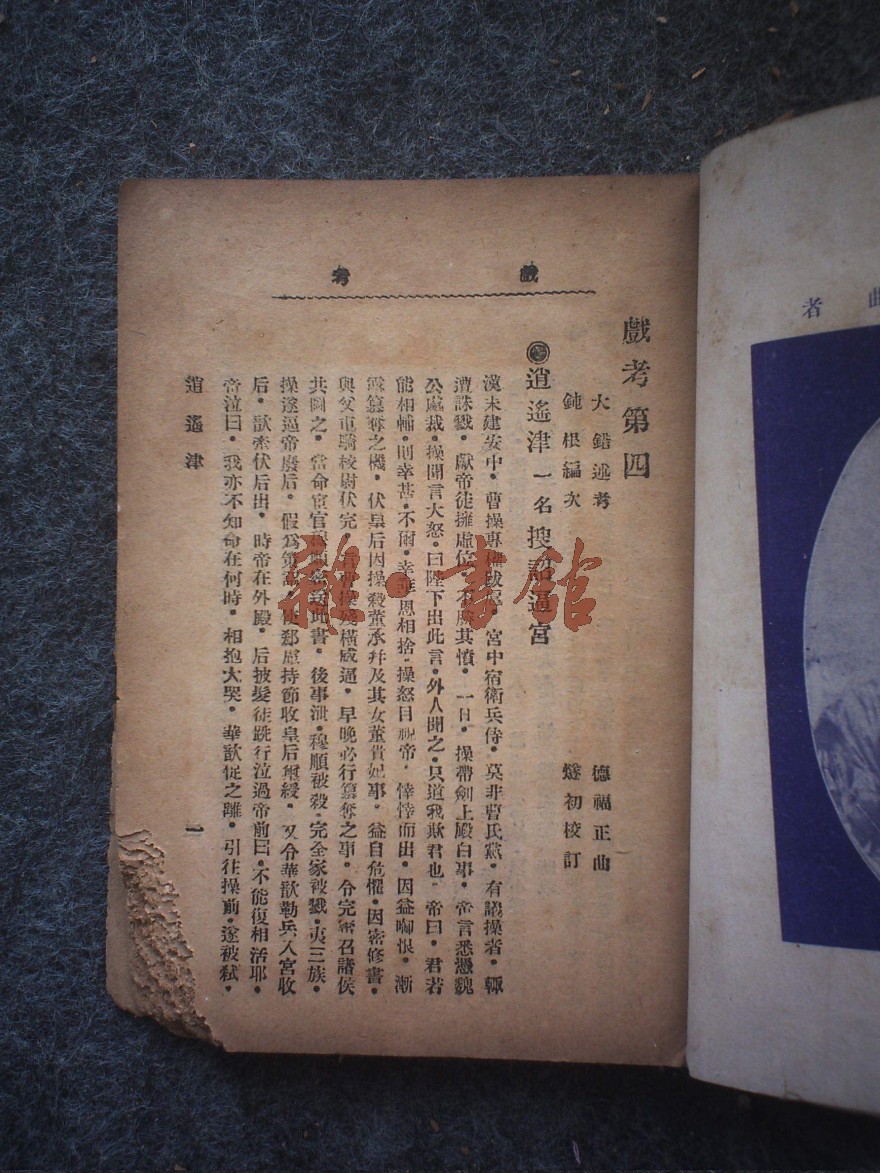 曲者
戲考
戲考第四
大錯述考
鈍根編次
德福正曲
燧初校訂
逍遙津 一名搜詔逼宮
漢末建安中・曹操專權跋扈・宮中宿衛兵侍・莫非曹氏黨・有議操者・輒
遭誅戮・獻帝徒擁虛位・不勝其憤・一日・操帶劍上殿白事・帝言悉憑魏
公處裁・操聞言大怒・曰陛下出此言・外人聞之・只道我欺君也・帝曰・君若
能相輔・則幸甚・不爾・幸垂恩相捨・操怒目視帝・悻悻而出・因益啣恨・漸
露篡奪之機・伏皇后因操殺董承幷及其女董貴妃事・益自危懼・因密修書・
與父屯騎校尉伏完・言曹操殘橫威逼・早晚必行篡奪之事・令完密召諸侯
共圖之・當命宦官穆順密送此書・後事泄・穆順被殺・完全家被戮・夷三族・
操遂逼帝廢后・假爲策詔・使郗慮持節收皇后璽綬・又令華歆勒兵入宮收
后・歆牽伏后出・時帝在外殿・后披髮徒跣行泣過帝前曰・不能復相活耶・
帝泣曰・我亦不知命在何時・相抱大哭・華歆促之離・引往操前・遂被弒・
逍遙津
一
雅・書館